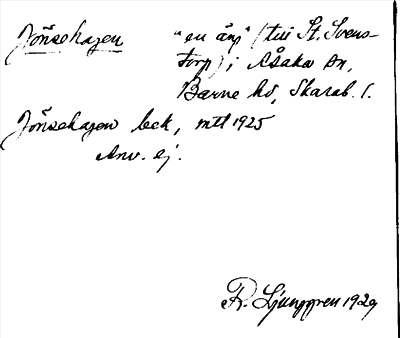 Jönsehagen "en äng" (till St. Svens-
torp) i Åsaka sn,
Barne hd, Skarab. l.
Jönsehagen bek, mtl 1925
Anv. ej.
R. Ljunggren 1929